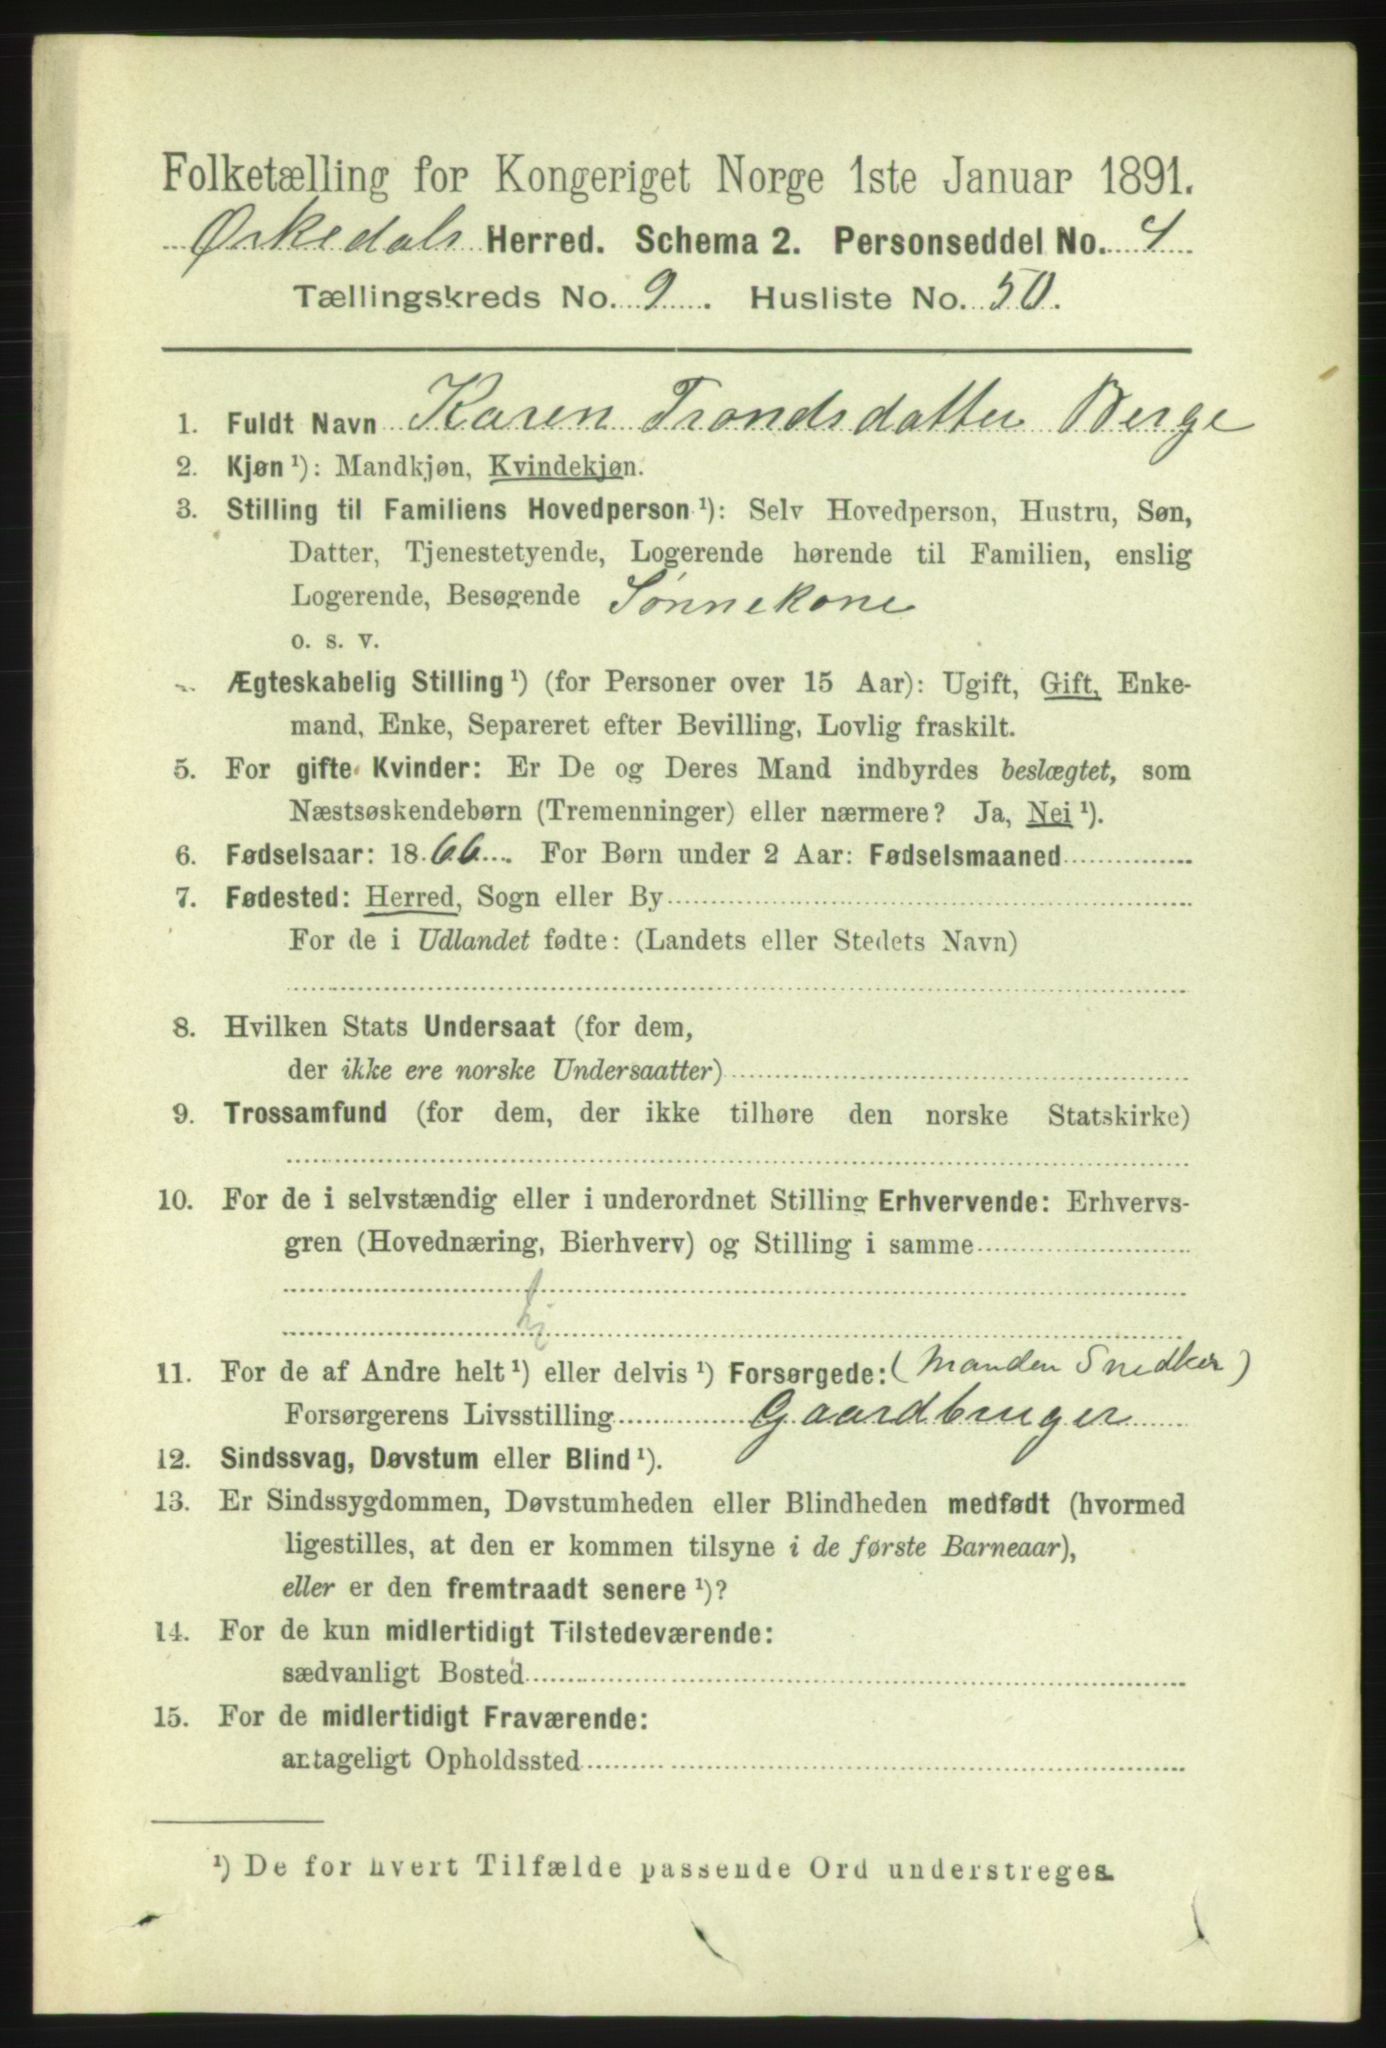 Folketælling for Kongeriget Norge 1ste Januar 1891.
Ørkedals Herred. Schema 2. Personseddel No. 4
Tællingskreds No. 9. Husliste No. 50.
1. Fuldt Navn Karen Trondsdatter Berge
2. Kjøn ¹): Mandkjøn, Kvindekjøn.
3. Stilling til Familiens Hovedperson ¹): Selv Hovedperson, Hustru, Søn,
Datter, Tjenestetyende, Logerende hørende til Familien, enslig
Logerende, Besøgende Sønnekone
o. s. v.
Ægteskabelig Stilling ¹) (for Personer over 15 Aar): Ugift, Gift, Enke-
mand, Enke, Separeret efter Bevilling, Lovlig fraskilt.
5. For gifte Kvinder: Er De og Deres Mand indbyrdes beslægtet, som
Næstsøskendebørn (Tremenninger) eller nærmere? Ja, Nei ¹).
6. Fødselsaar: 1866. For Børn under 2 Aar: Fødselsmaaned
7. Fødested: Herred, Sogn eller By
For de i Udlandet fødte: (Landets eller Stedets Navn)
8. Hvilken Stats Undersaat (for dem,
der ikke ere norske Undersaatter)
9. Trossamfund (for dem, der ikke tilhøre den norske Statskirke)
10. For de i selvstændig eller i underordnet Stilling Erhvervende: Erhvervs-
gren (Hovednæring, Bierhverv) og Stilling i samme
11. For de af Andre helt ¹) eller delvis ¹) Forsørgede: (Manden Snedker)
Forsørgerens Livsstilling Gaardbruger
12. Sindssvag, Døvstum eller Blind ¹).
13. Er Sindssygdommen, Døvstumheden eller Blindheden medfødt (hvormed
ligestilles, at den er kommen tilsyne i de første Barneaar),
eller er den fremtraadt senere ¹)?
14. For de kun midlertidigt Tilstedeværende:
sædvanligt Bosted
15. For de midlertidigt Fraværende:
antageligt Opholdssted
¹) De for hvert Tilfælde passende Ord understreges.